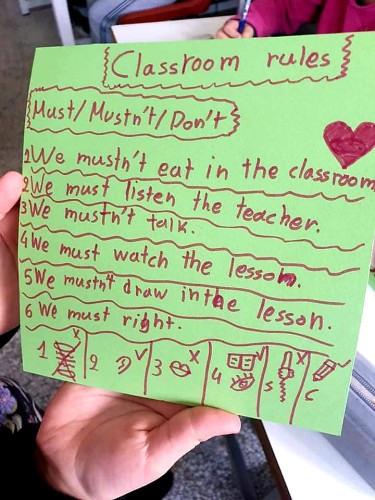 Classroom rules
Must/Mustn't/Don't
1 We mustn't eat in the classroom
2 We must listen the teacher.
3 We mustn't talk.
4 We must watch the lesson.
5 We mustn't draw in the lesson.
6 We must right.
1 2 3 4 5 6